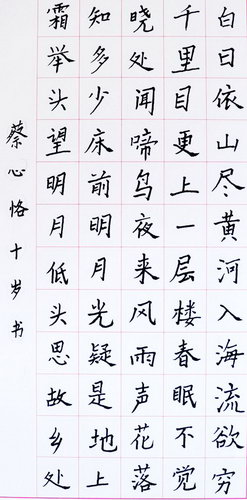 白日依山尽黄河入海流欲穷
千里目更上一层楼春眠不觉
晓处闻啼鸟夜来风雨声花落
知多少床前明月光疑是地上
霜举头望明月低头思故乡处
蔡心恪十岁书